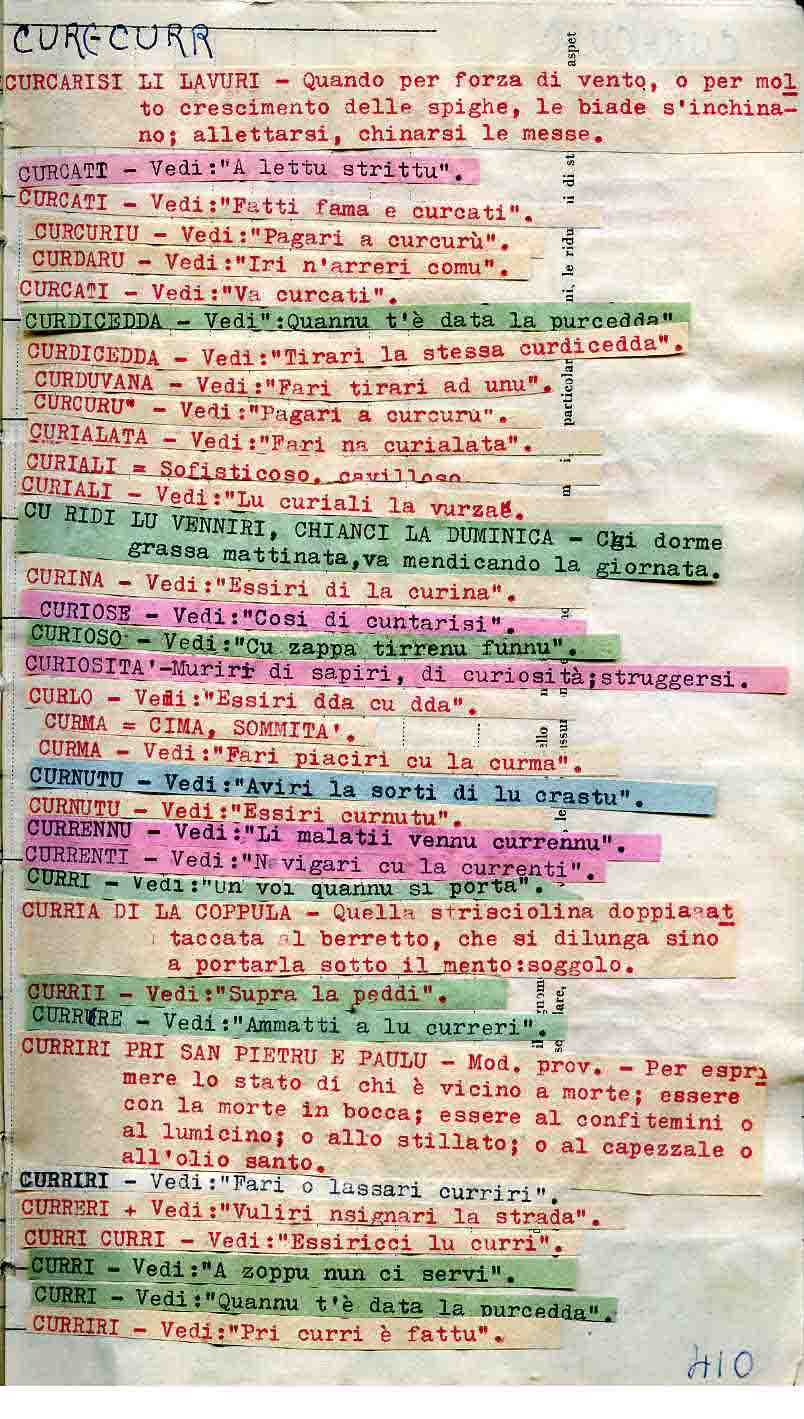 CUR-CURR
CURCARISI LI LAVURI - Quando per forza di vento, o per mol
to crescimento delle spighe, le biade s'inchina-
no; allettarsi, chinarsi le messe.
CURCATI - Vedi:"A lettu strittu".
CURCATI - Vedi:"Fatti fama e curcati".
CURCURIU - Vedi:"Pagari a curcurù".
CURDARU - Vedi:"Iri n'arreri comu".
CURCATI - Vedi:"Va curcati".
CURDICEDDA - Vedi":Quannu t'è data la purcedda"
CURDICEDDA - Vedi:"Tirari la stessa curdicedda".
CURDUVANA - Vedi:"Fari tirari ad unu".
CURCURU" - Vedi:"Pagari a curcuru".
CURIALATA - Vedi:"Fari na curialata".
CURIALI = Sofisticoso, cavilloso
CURIALI - Vedi:"Lu curiali la vurza".
CU RIDI LU VENNIRI, CHIANCI LA DUMINICA - Chi dorme
grassa mattinata,va mendicando la giornata.
CURINA - Vedi:"Essiri di la curina".
CURIOSE - Vedi:"Cosi di cuntarisi".
CURIOSO - Vedi:"Cu zappa tirrenu funnu".
CURIOSITA'-Muriri di sapiri, di curiosità;struggersi.
CURLO - Vedi:"Essiri dda cu dda".
CURMA = CIMA, SOMMITA'.
CURMA - Vedi:"Fari piaciri cu la curma".
CURNUTU - Vedi:"Aviri la sorti di lu crastu".
CURNUTU - Vedi:"Essiri curnutu".
CURRENNU - Vedi:"Li malatii vennu currennu".
CURRENTI - Vedi:"Navigari cu la currenti".
CURRI - Vedi:"Un voi quannu si porta".
CURRIA DI LA COPPULA - Quella strisciolina doppia at
taccata al berretto, che si dilunga sino
a portarla sotto il mento:soggolo.
CURRII - Vedi:"Supra la peddi".
CURRERE - Vedi:"Ammatti a lu curreri".
CURRIRI PRI SAN PIETRU E PAULU - Mod. prov. - Per espri
mere lo stato di chi è vicino a morte; essere
con la morte in bocca; essere al confitemini o
al lumicino; o allo stillato; o al capezzale o
all'olio santo.
CURRIRI - Vedi:"Fari o lassari curriri".
CURRERI + Vedi:"Vuliri nsignari la strada".
CURRI CURRI - Vedi:"Essiricci lu curri".
CURRI - Vedi:"A zoppu nun ci servi".
CURRI - Vedi:"Quannu t'è data la purcedda".
CURRIRI - Vedi:"Pri curri è fattu".
410